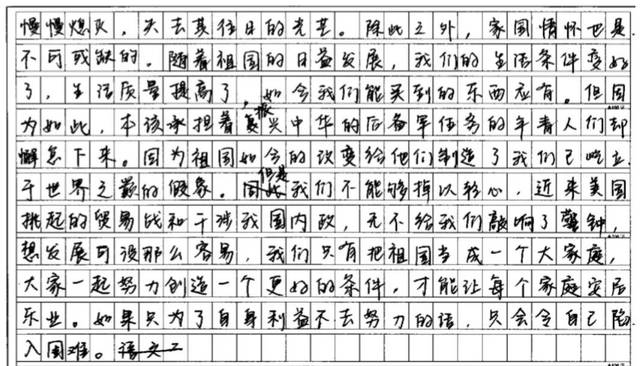 慢慢熄灭，失去其往日的光芒。除此之外，家国情怀也是
不可或缺的。随着祖国的日益发展，我们的生活条件变好
了，生活质量提高了，如今我们能买到的东西应有。但因
为如此，本该承担着复振兴中华的后备军任务的年青人们却
懈怠下来。因为祖国如今的改变给他们制造了我们已屹立
于世界之巅的假象。但是我们不能够掉以轻心，近来美国
挑起的贸易战和干涉我国内政，无不给我们敲响了警钟，
想发展可没那么容易，我们只有把祖国当成一个大家庭，
大家一起努力创造一个更好的条件，才能让每个家庭安居
乐业。如果只为了自身利益不去努力的话，只会令自己陷
入困难。